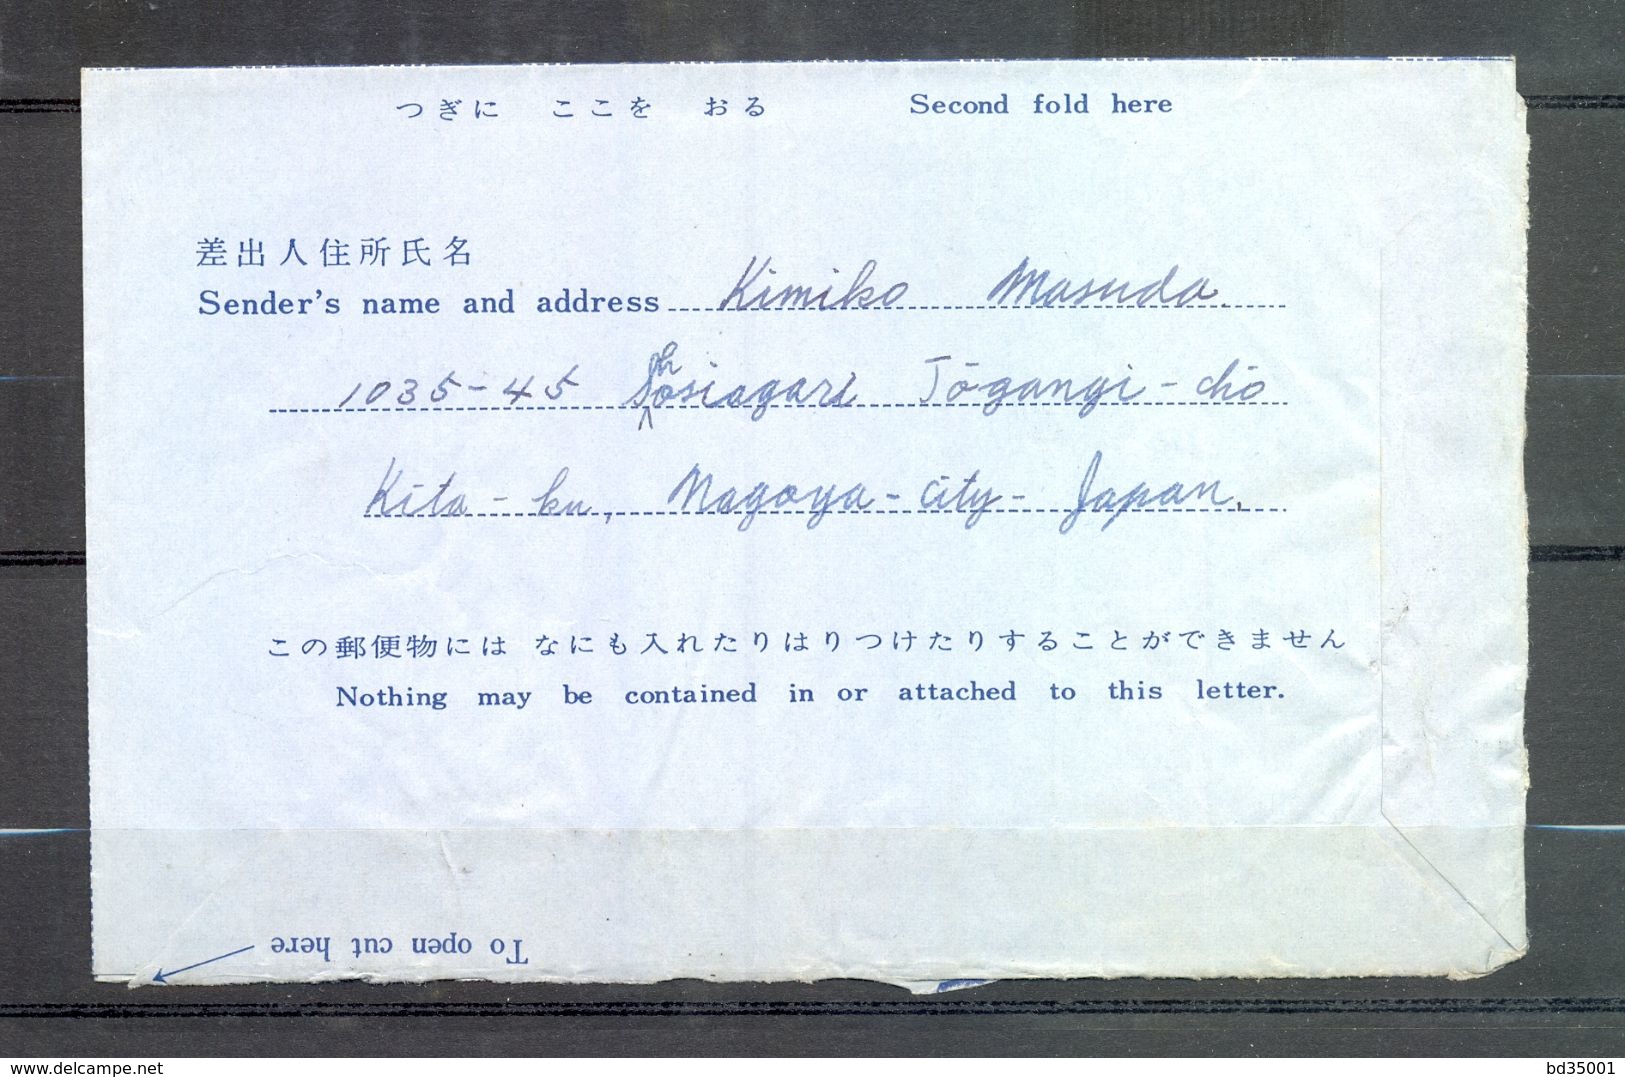 つぎに ここを おる Second fold here
差出人住所氏名
Sender's name and address Kimiko Masuda.
1035-45 Shosiagari Tōgangi-chō
Kita-ku, Nagoya-city-Japan.
この郵便物には なにも入れたりはりつけたりすることができません
Nothing may be contained in or attached to this letter.
To open cut here
www.delcampe.net
bd35001